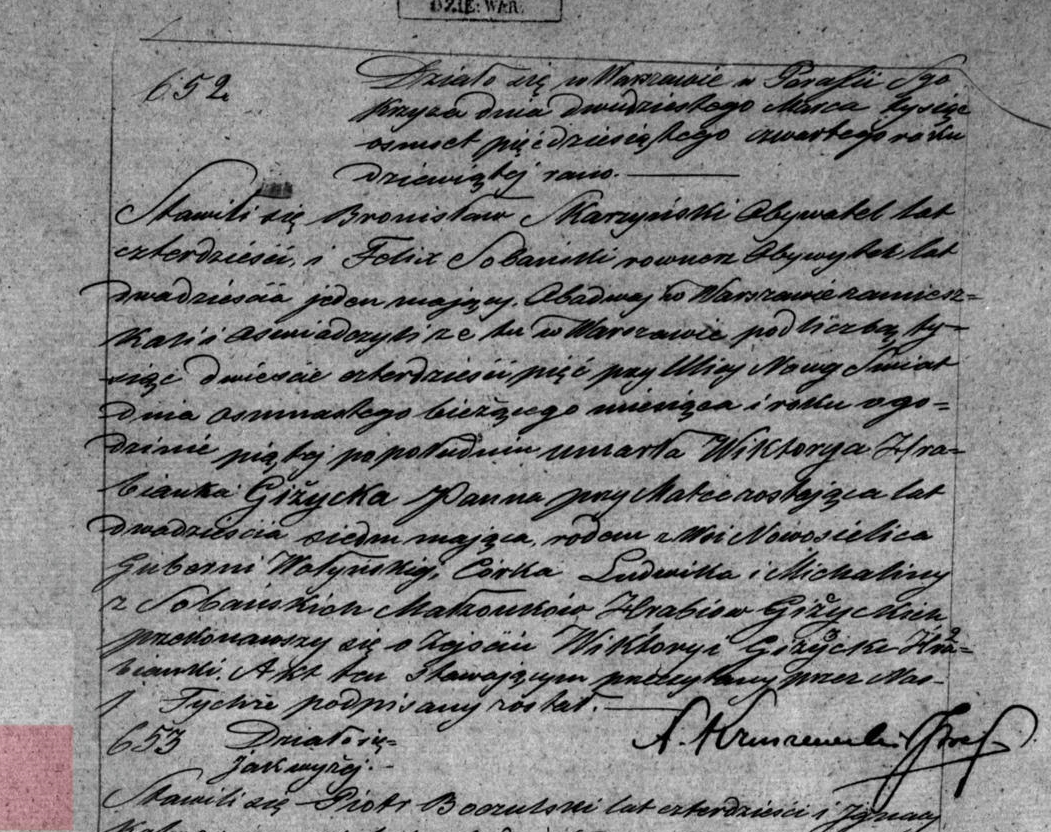 DZIE: WAR.
652 Działo się w Warszawie w Parafii Sgo
Krzyża dnia dwudziestego Marca tysiąc
osmset pięćdziesiątego czwartego roku
dziewiątej rano.
Stawili się Bronisław Skarzyński Obywatel lat
czterdzieści, i Felix Sobański rownież Obywatel lat
dwadzieścia jeden mający. Obadwaj w Warszawie zamiesz=
kali i oświadczyli że tu w Warszawie pod liczbą ty=
siąc dwieście czterdzieści pięć przy Ulicy Nowy Świat
dnia osmnastego bieżącego miesiąca i roku o go=
dzinie piątej po południu umarła Wiktorya Hra=
bianka Giżycka Panna przy Matce zostająca lat
dwadzieścia siedm mająca, rodem z Wsi Nowosielica
Guberni Wołyńskiej, Córka Ludwika i Michaliny
z Sobańskich Małżonków Hrabiów Giżyckich
przekonawszy się o zejściu Wiktoryi Giżyckiej Hra=
bianki. Akt ten Stawającym przeczytany przez Nas
i Tychże podpisany został.
A. Kruszewski
653 Działo się=
jak wyżej.
Stawili się Piotr lat czterdzieści i Ignacy